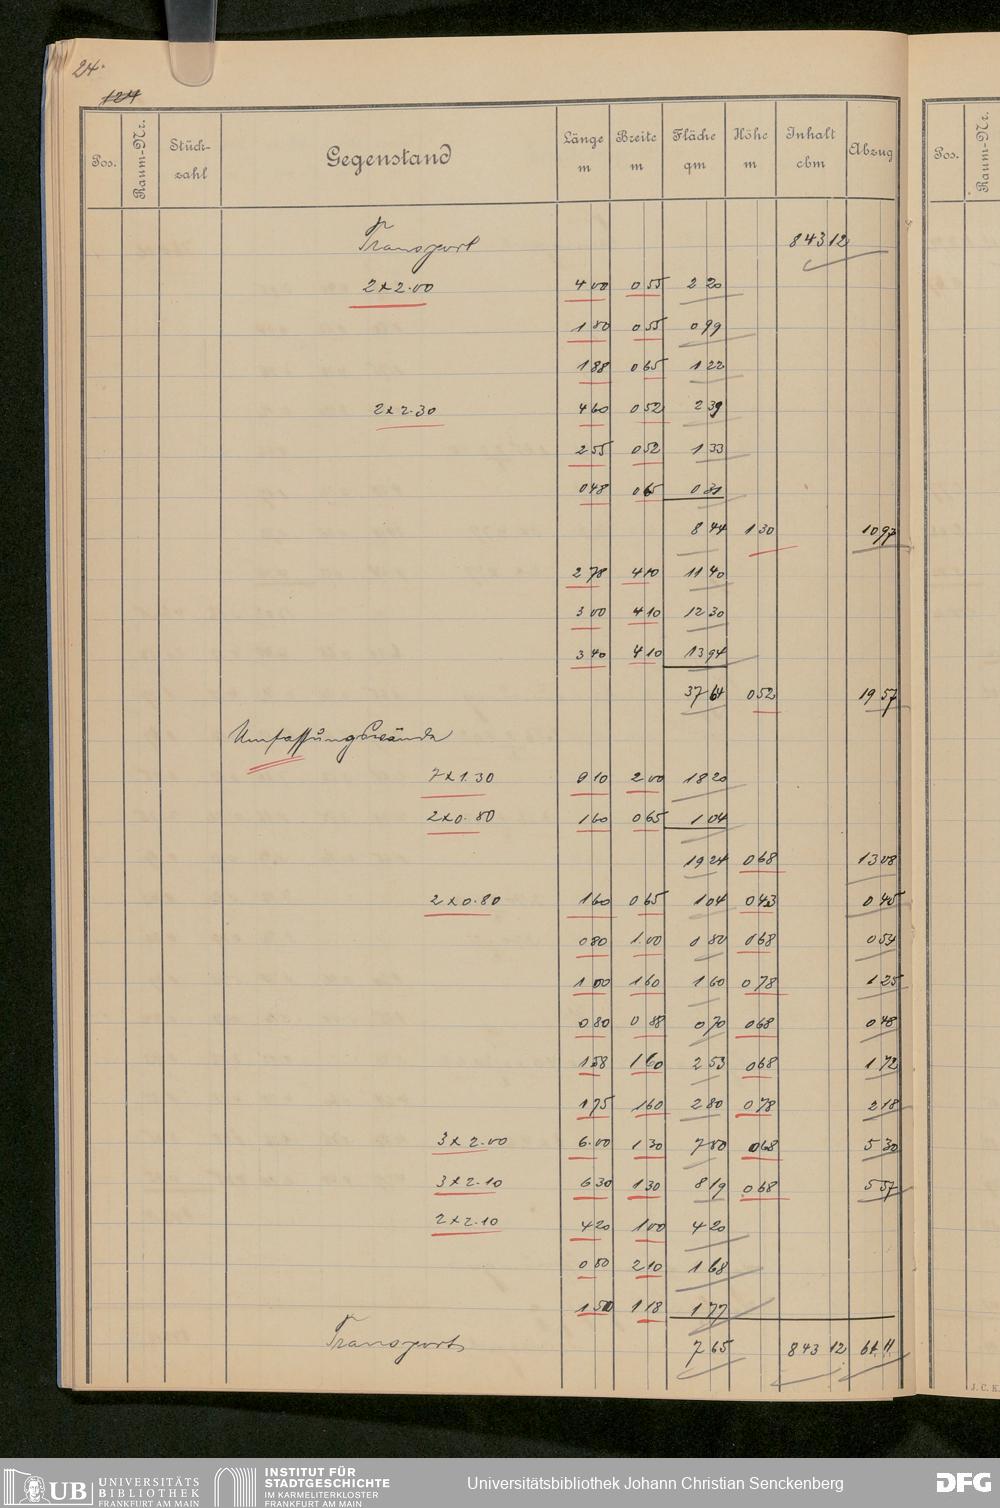 24.
124
Pos. Raum-Nr. Stück-zahl Gegenstand Länge m Breite m Fläche qm Höhe m Inhalt cbm Abzug Pos. Raum-Nr.
Transport 843 12
2 x 2.00 4 00 0 55 2 20
1 80 0 55 0 99
1 88 0 65 1 22
2 x 2.30 4 60 0 52 2 39
2 55 0 52 1 33
0 48 0 65 0 31
8 44 1 30 10 97
2 78 4 10 11 40
3 00 4 10 12 30
3 40 4 10 13 94
37 64 0 52 19 57
Umfassungswände
7 x 1.30 9 10 2 00 18 20
2 x 0.80 1 60 0 65 1 04
19 24 0 68 13 08
2 x 0.80 1 60 0 65 1 04 0 43 0 45
0 80 1.00 0 80 0 68 0 54
1 00 1 60 1 60 0 78 1 25
0 80 0 88 0 70 0 68 0 48
1 58 1 60 2 53 0 68 1 72
1 75 1 60 2 80 0 78 2 18
3 x 2.00 6.00 1 30 7 80 0 68 5 30
3 x 2.10 6 30 1 30 8 19 0 68 5 57
2 x 2.10 4 20 1 00 4 20
0 80 2 10 1 68
1 50 1 18 1 77
Transport 7 65 843 12 61 11
J. C. K.
UB UNIVERSITÄTS BIBLIOTHEK FRANKFURT AM MAIN
INSTITUT FÜR STADTGESCHICHTE IM KARMELITERKLOSTER FRANKFURT AM MAIN
Universitätsbibliothek Johann Christian Senckenberg
DFG